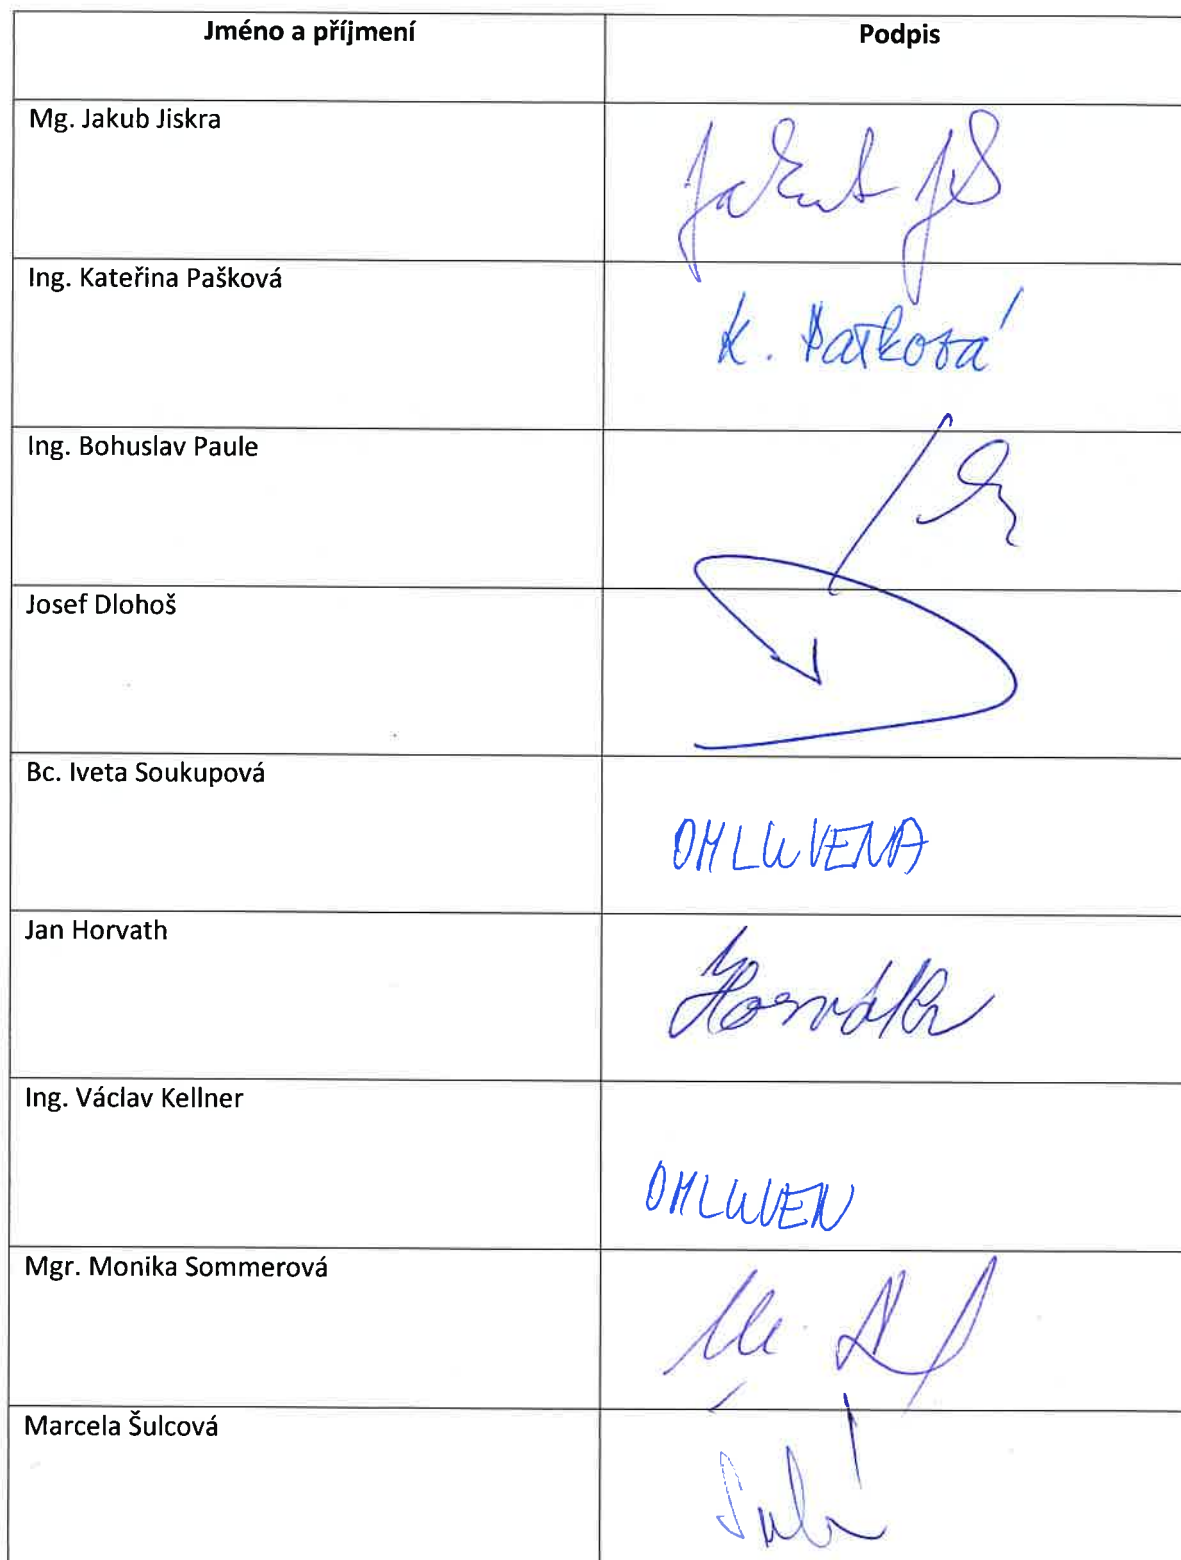 Jméno a příjmení
Podpis
Mg. Jakub Jiskra
Ing. Kateřina Pašková
K. Pašková
Ing. Bohuslav Paule
Josef Dlohoš
Bc. Iveta Soukupová
OMLUVENA
Jan Horvath
Horváth
Ing. Václav Kellner
OMLUVEN
Mgr. Monika Sommerová
Marcela Šulcová